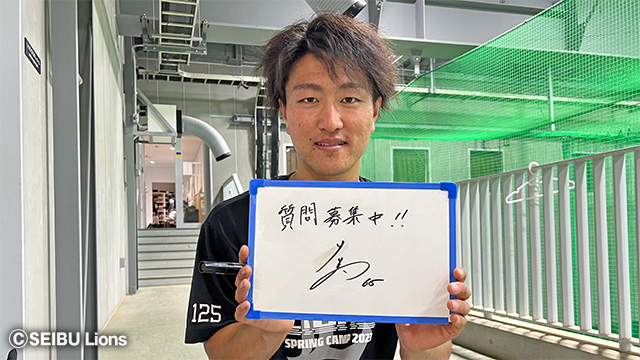 質問募集中!!
65
125
SPRING CAMP 202
©SEIBU Lions